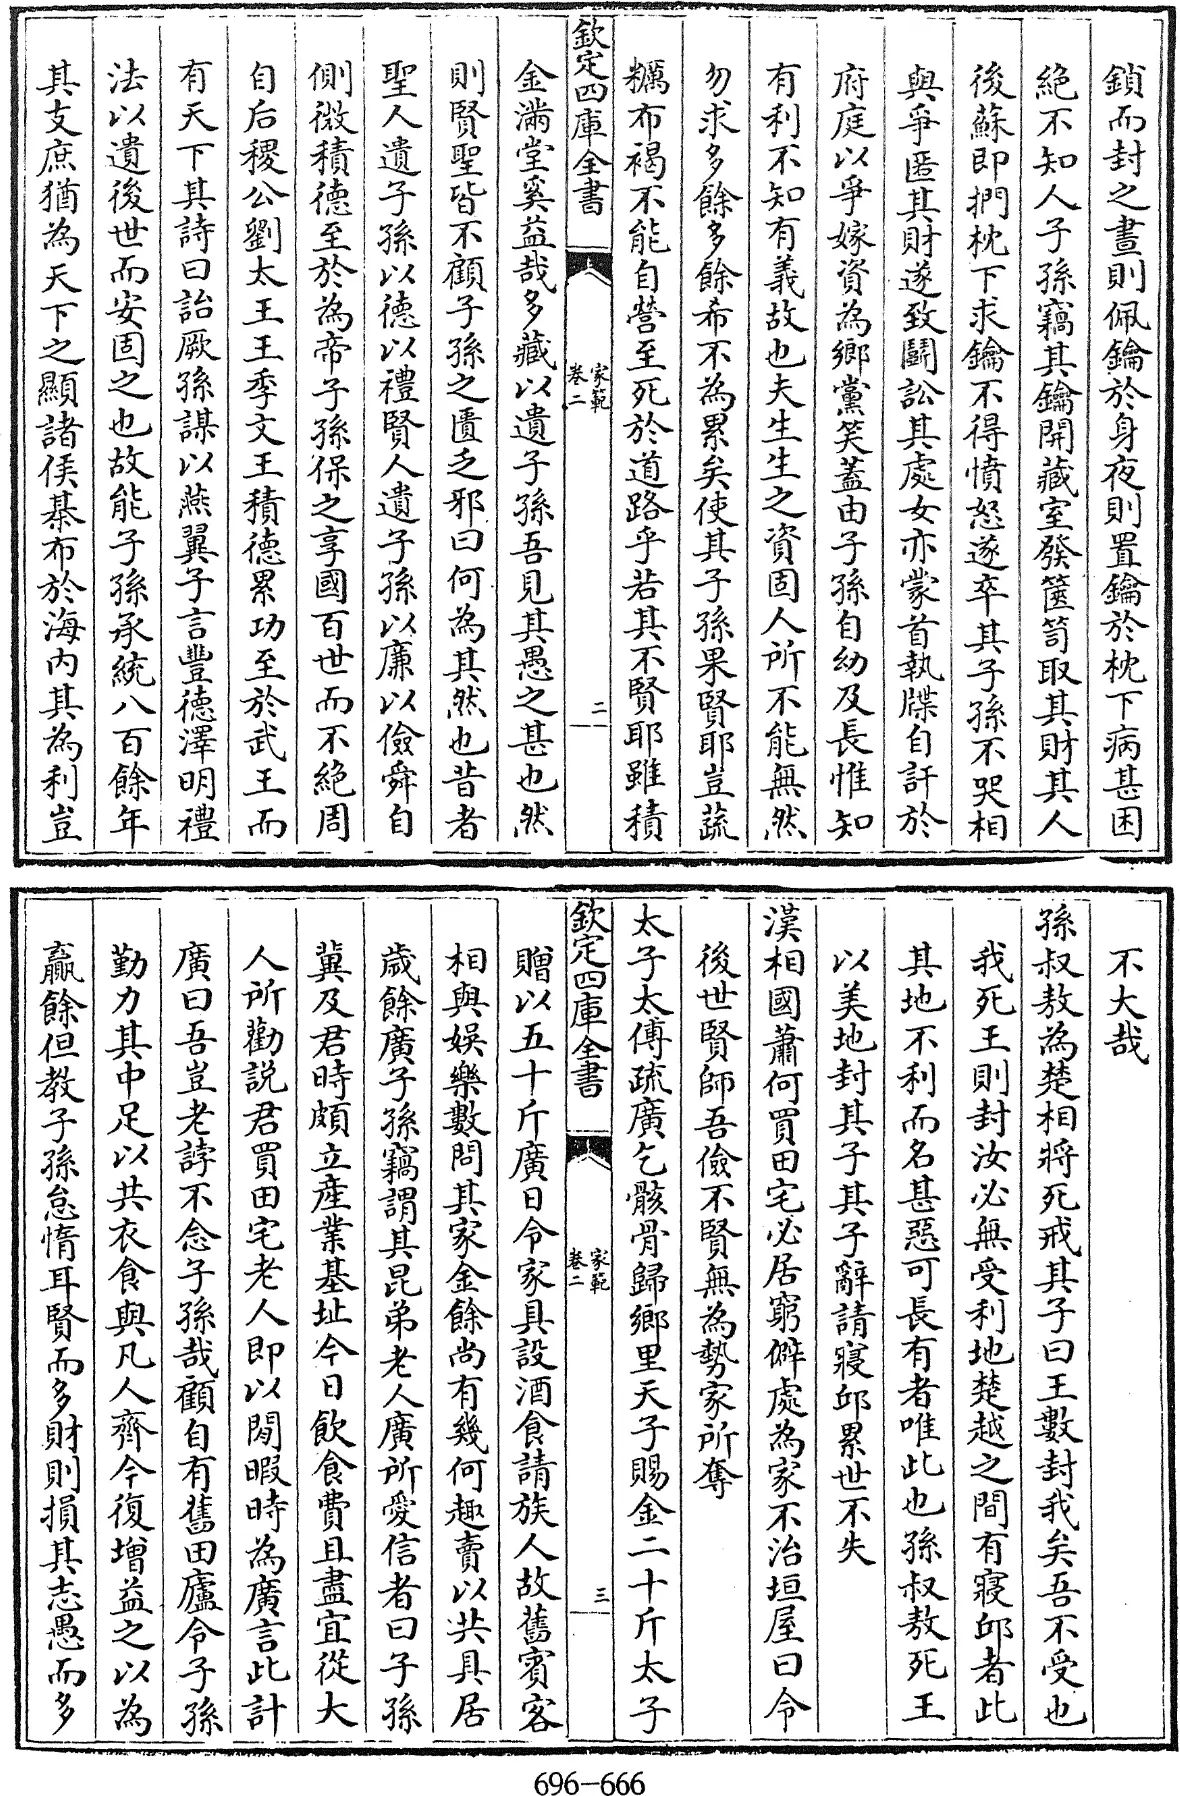 鎖而封之晝則佩鑰於身夜則置鑰於枕下病甚困
絶不知人子孫竊其鑰開藏室發篋笥取其財其人
後蘇即捫枕下求鑰不得憤怒遂卒其子孫不哭相
與爭匿其財遂致鬭訟其處女亦蒙首執牒自訐於
府庭以爭嫁資為鄉黨笑蓋由子孫自幼及長惟知
有利不知有義故也夫生生之資固人所不能無然
勿求多餘多餘希不為累矣使其子孫果賢耶豈蔬
糲布褐不能自營至死於道路乎若其不賢耶雖積
欽定四庫全書
家範
卷二
二
金滿堂奚益哉多藏以遺子孫吾見其愚之甚也然
則賢聖皆不顧子孫之匱乏邪曰何為其然也昔者
聖人遺子孫以德以禮賢人遺子孫以廉以儉舜自
側微積德至於為帝子孫保之享國百世而不絶周
自后稷公劉太王王季文王積德累功至於武王而
有天下其詩曰詒厥孫謀以燕翼子言豐德澤明禮
法以遺後世而安固之也故能子孫承統八百餘年
其支庶猶為天下之顯諸侯棊布於海内其為利豈
不大哉
孫叔敖為楚相將死戒其子曰王數封我矣吾不受也
我死王則封汝必無受利地楚越之間有寢邱者此
其地不利而名甚惡可長有者唯此也孫叔敖死王
以美地封其子其子辭請寢邱累世不失
漢相國蕭何買田宅必居窮僻處為家不治垣屋曰令
後世賢師吾儉不賢無為勢家所奪
太子太傅疏廣乞骸骨歸鄉里天子賜金二十斤太子
欽定四庫全書
家範
卷二
三
贈以五十斤廣日令家具設酒食請族人故舊賓客
相與娯樂數問其家金餘尚有幾何趣賣以共具居
歲餘廣子孫竊謂其昆弟老人廣所愛信者曰子孫
冀及君時頗立產業基址今日飲食費且盡宜從大
人所勸説君買田宅老人即以閒暇時為廣言此計
廣曰吾豈老誖不念子孫哉顧自有舊田廬令子孫
勤力其中足以共衣食與凡人齊今復增益之以為
贏餘但教子孫怠惰耳賢而多財則損其志愚而多
696-666